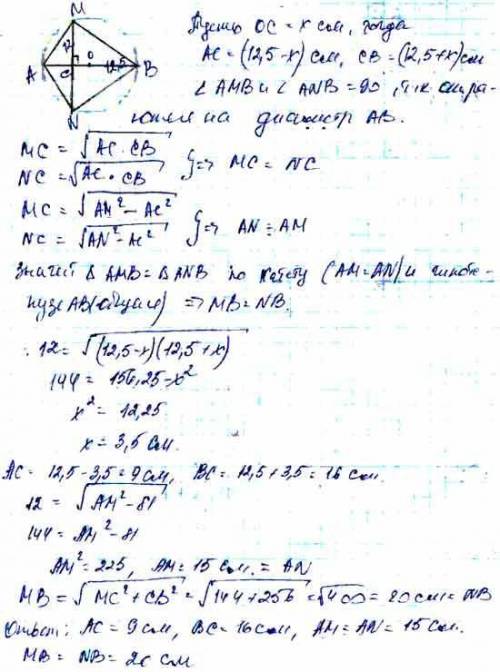 M
12
O
A
C
12,5
B
N
Пусть OC = x см, тогда
AC = (12,5-x) см, CB = (12,5+x) см
∠ AMB и ∠ ANB = 90, т.к. опира-
ются на диаметр AB.
MC = √AC · CB
NC = √AC · CB } => MC = NC
MC = √AM² - AC²
NC = √AN² - AC² } => AN = AM
Значит △ AMB = △ ANB по катету (AM = AN) и гипоте-
нузе AB (общая) => MB = NB.
12 = √(12,5-x)(12,5+x)
144 = 156,25 - x²
x² = 12,25
x = 3,5 см.
AC = 12,5 - 3,5 = 9 см, BC = 12,5 + 3,5 = 16 см.
12 = √AM² - 81
144 = AM² - 81
AM² = 225, AM = 15 см. = AN
MB = √MC² + CB² = √144 + 256 = √400 = 20 см = NB
Ответ: AC = 9 см, BC = 16 см, AM = AN = 15 см.
MB = NB = 20 см